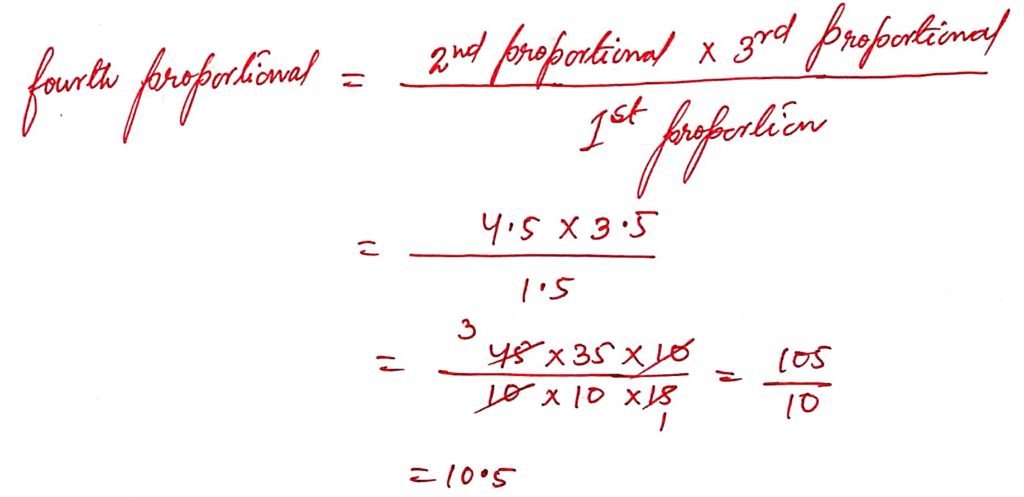 fourth proportional = 2nd proportional x 3rd proportional
1st proportion
= 4.5 x 3.5
1.5
= 3 45 x 35 x 10 = 105
10 x 10 x 15 10
1
= 10.5